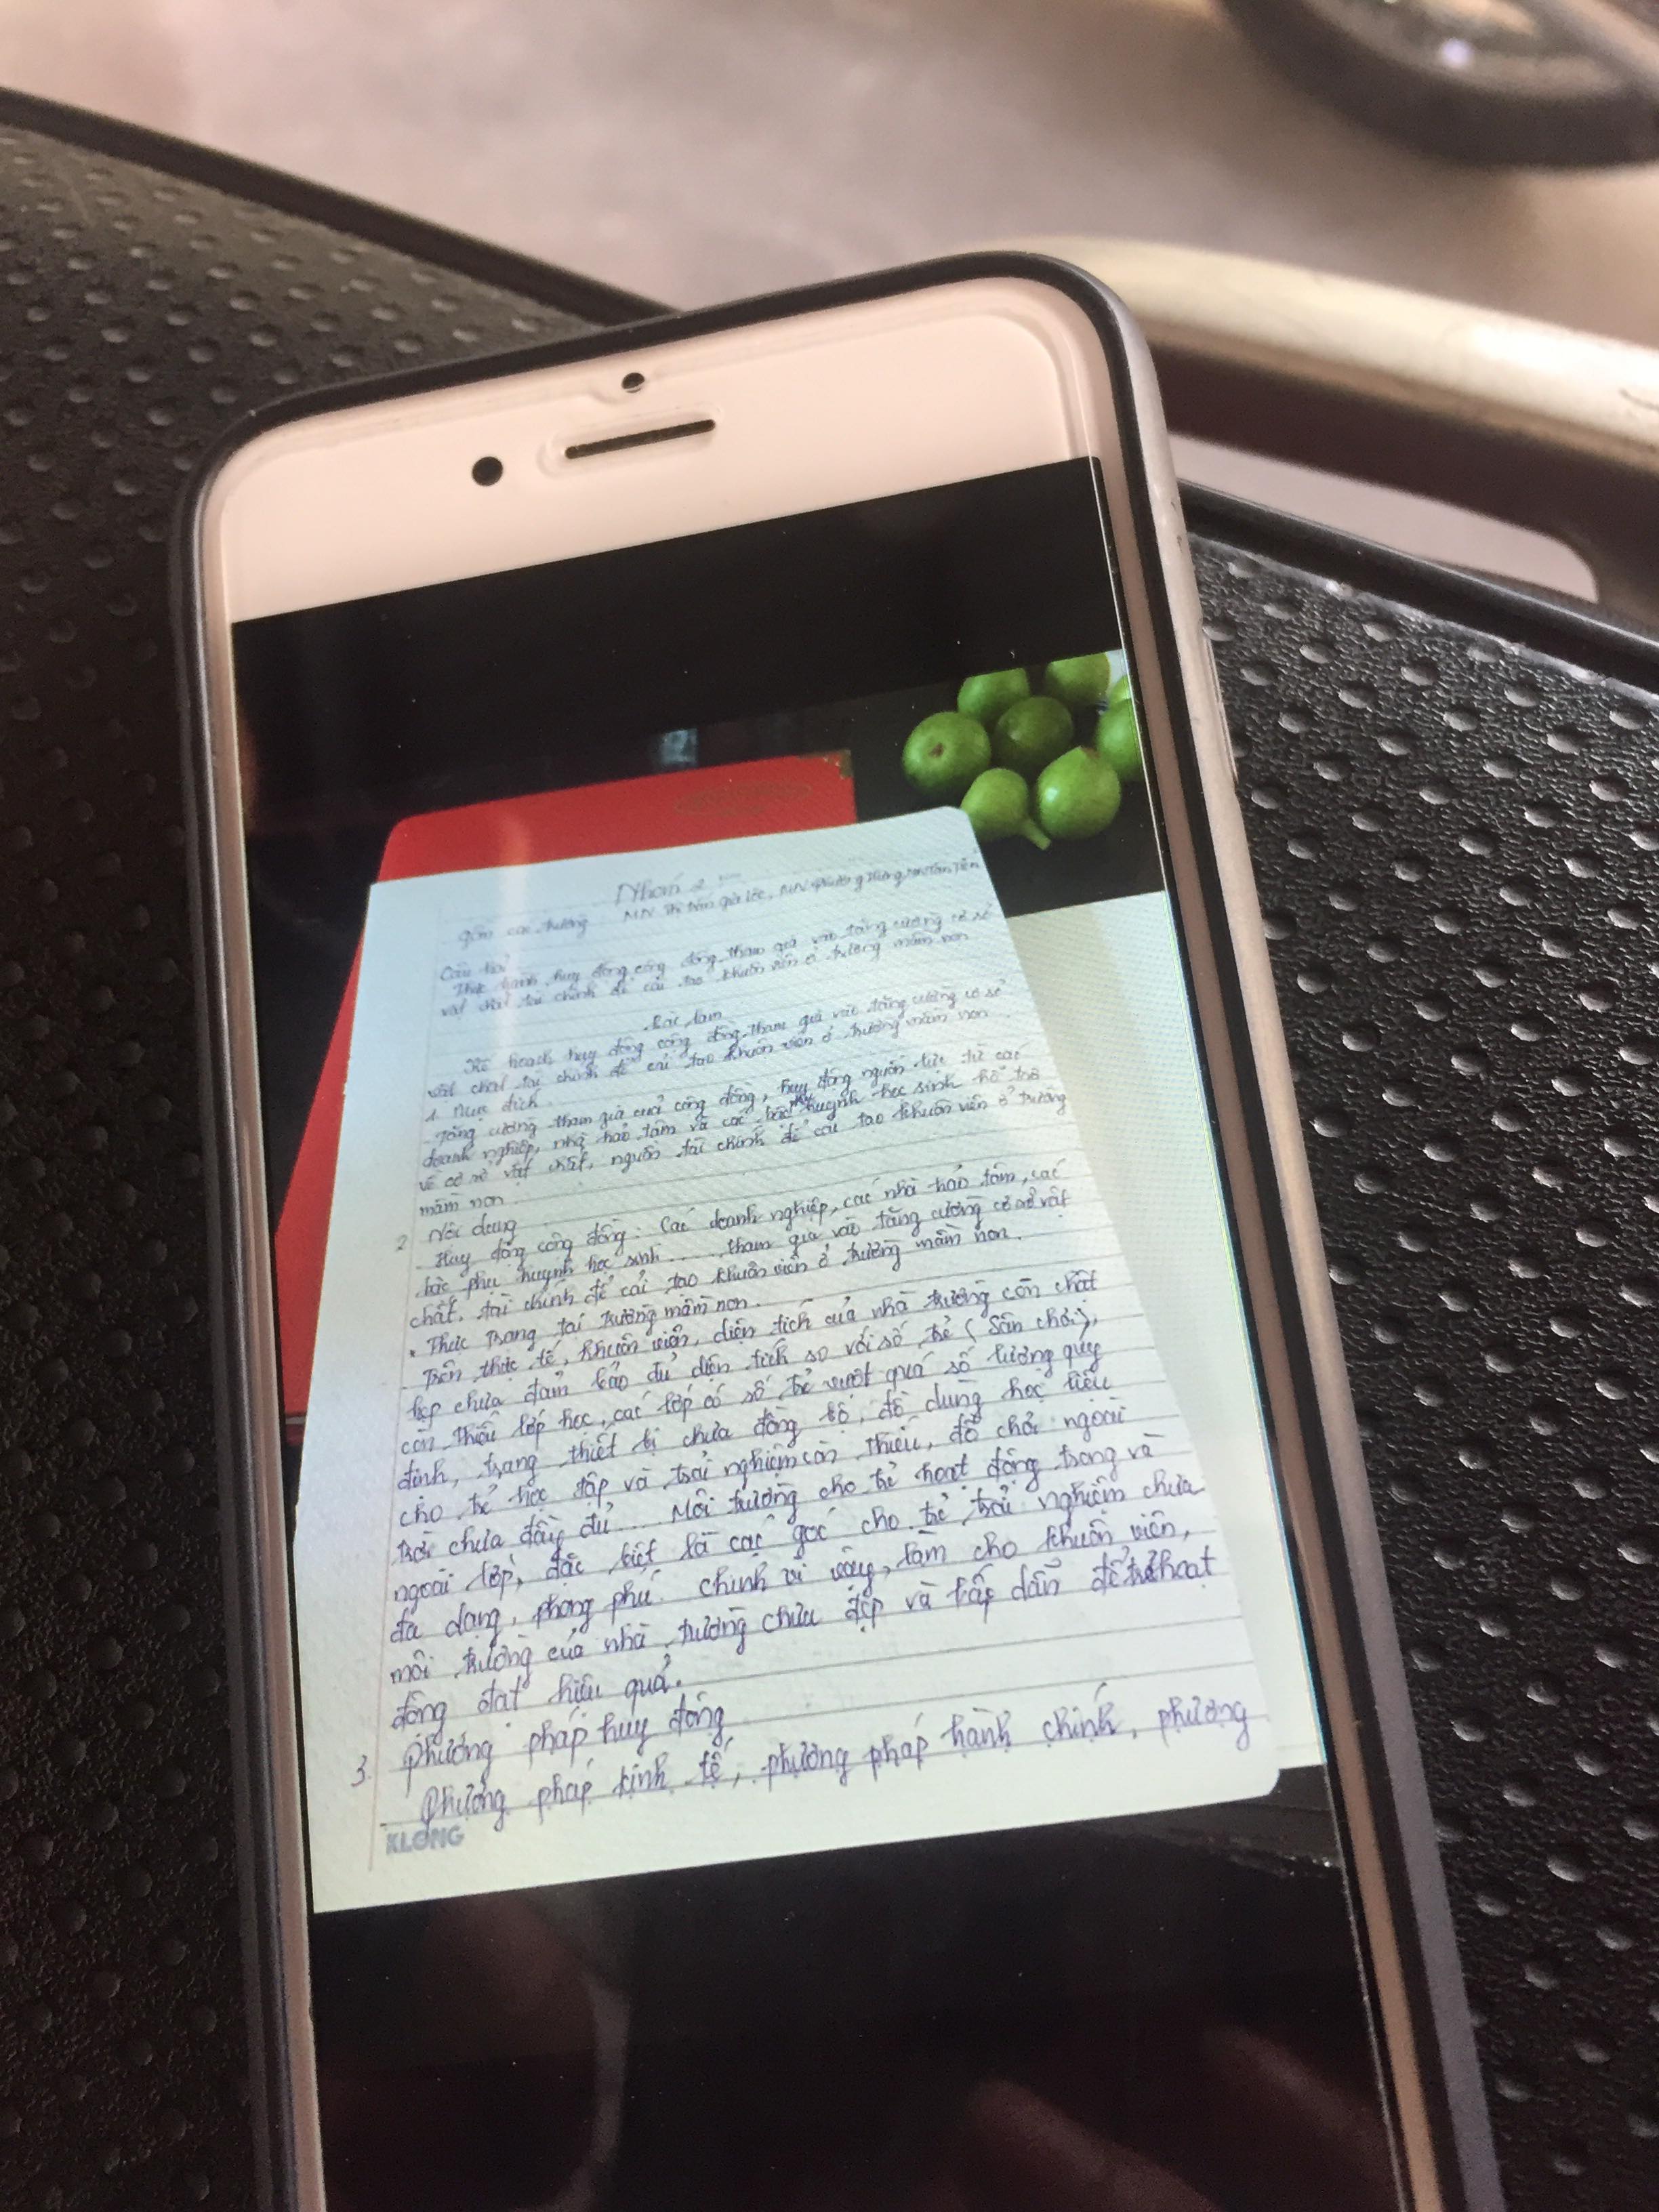 Nhóm 2
gồm các trường MN Thị trấn gia Lộc, MN Phương Hưng, MN Tân Tiến
Câu hỏi
Thực hành huy động cộng đồng tham gia vào tăng cường cơ sở
vật chất tài chính để cải tạo khuôn viên ở trường mầm non
Bài làm
Kế hoạch huy động cộng đồng tham gia vào tăng cường cơ sở
vật chất tài chính để cải tạo khuôn viên ở trường mầm non
1. Mục đích
- Tăng cường tham gia của cộng đồng, huy động nguồn lực từ các
doanh nghiệp, nhà hảo tâm và các bậc phụ huynh học sinh hỗ trợ
về cơ sở vật chất, nguồn tài chính để cải tạo khuôn viên ở trường
mầm non
2 Nội dung
- Huy động cộng đồng: Các doanh nghiệp, các nhà hảo tâm, các
bậc phụ huynh học sinh ... tham gia vào tăng cường cơ sở vật
chất, tài chính để cải tạo khuôn viên ở trường mầm non.
• Thực trạng tại trường mầm non.
- Trên thực tế, khuôn viên, diện tích của nhà trường còn chật
hẹp chưa đảm bảo đủ diện tích so với số trẻ (Sân chơi),
còn thiếu lớp học, các lớp có số trẻ vượt quá số lượng quy
định, trang thiết bị chưa đồng bộ, đồ dùng học liệu
cho trẻ học tập và trải nghiệm còn thiếu, đồ chơi ngoài
trời chưa đầy đủ... Môi trường cho trẻ hoạt động trong và
ngoài lớp, đặc biệt là các góc cho trẻ trải nghiệm chưa
đa dạng, phong phú. Chính vì vậy, làm cho khuôn viên,
môi trường của nhà trường chưa đẹp và hấp dẫn để trẻ hoạt
động đạt hiệu quả.
3. Phương pháp huy động
Phương pháp kinh tế, phương pháp hành chính, phương
KLONG